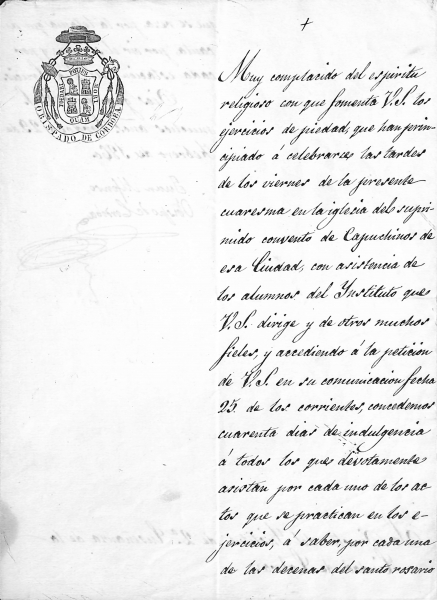 +
OBISPADO DE CORDOBA
Muy complacido del espiritu
religioso con que fomenta V.S. los
ejercicios de piedad, que han prin-
cipiado á celebrarse las tardes
de los viernes de la presente
cuaresma en la iglecia del supri-
mido convento de Capuchinos de
esa Ciudad, con asistencia de
los alumnos del Instituto que
V.S. dirige y de otros muchos
fieles, y accediendo á la peticion
de V.S. en su comunicacion fecha
25. de los corrientes, concedemos
cuarenta dias de indulgencia
á todos los que devotamente
asistan por cada uno de los ac-
tos que se practican en los e-
jercicios, á saber, por cada una
de las decenas del santo rosario